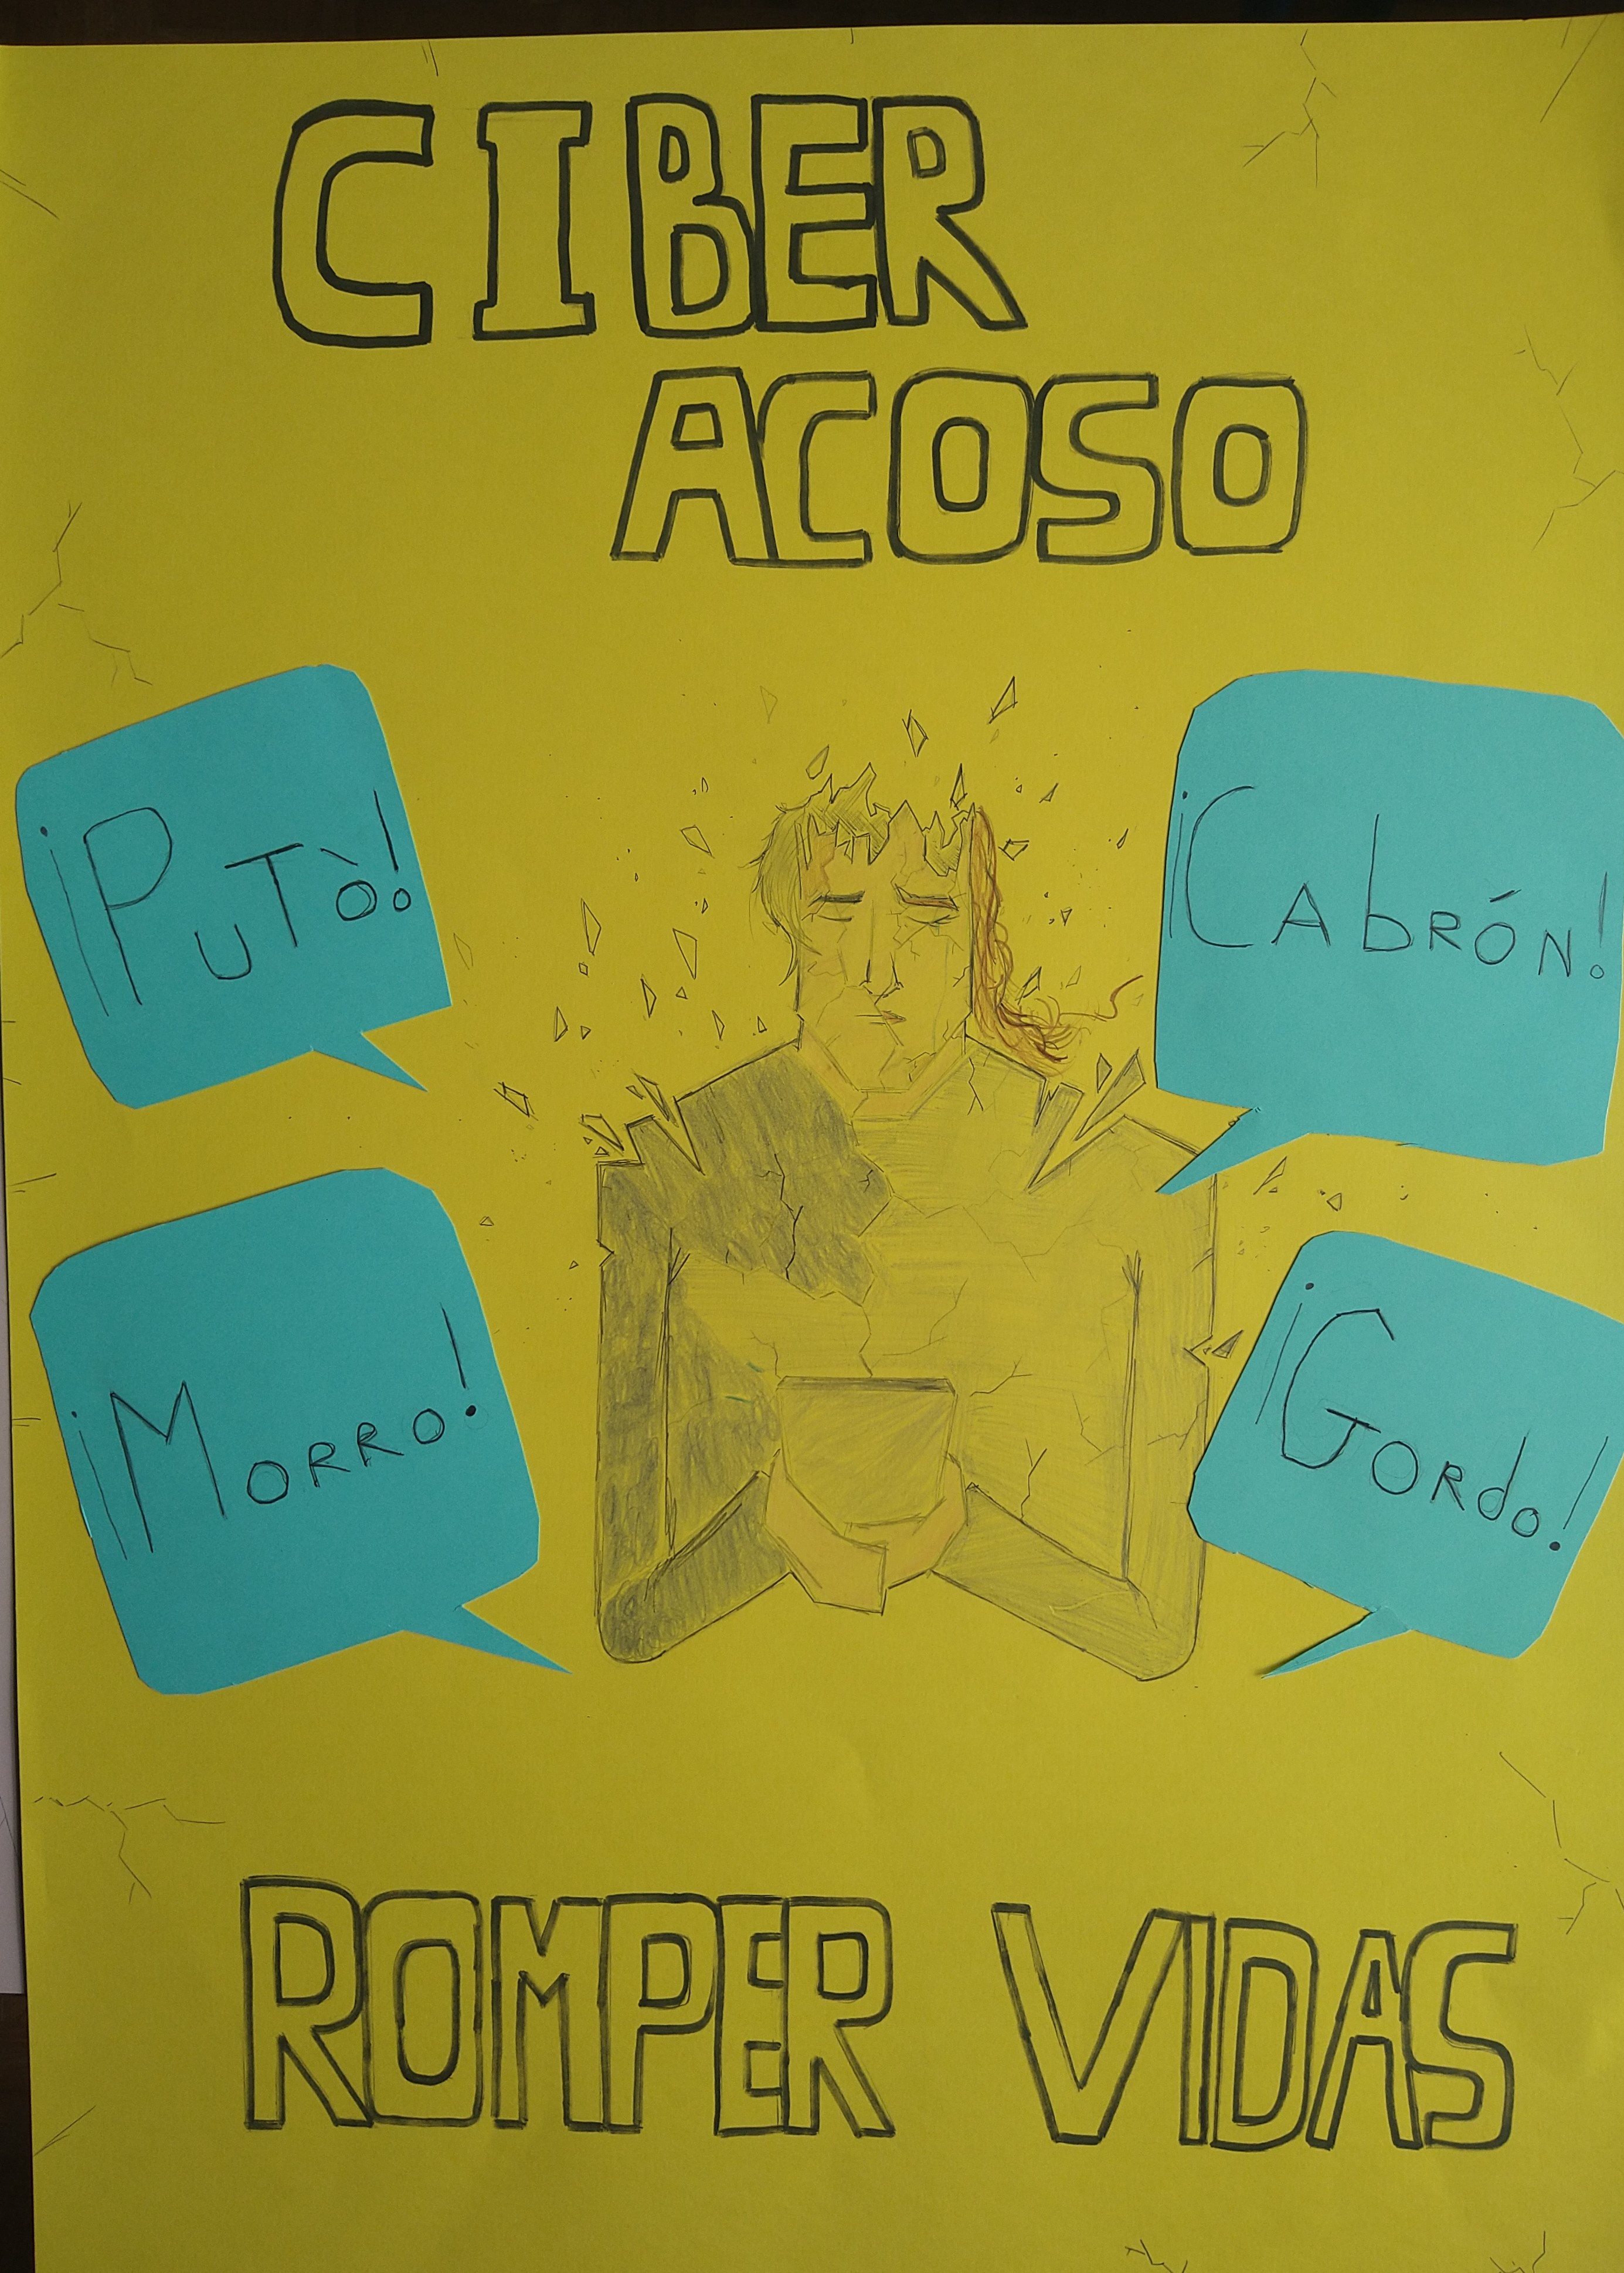 CIBER
ACOSO
¡PuTò!
¡CAbRÓN!
¡MORRO!
¡GORdo!
ROMPER VIDAS